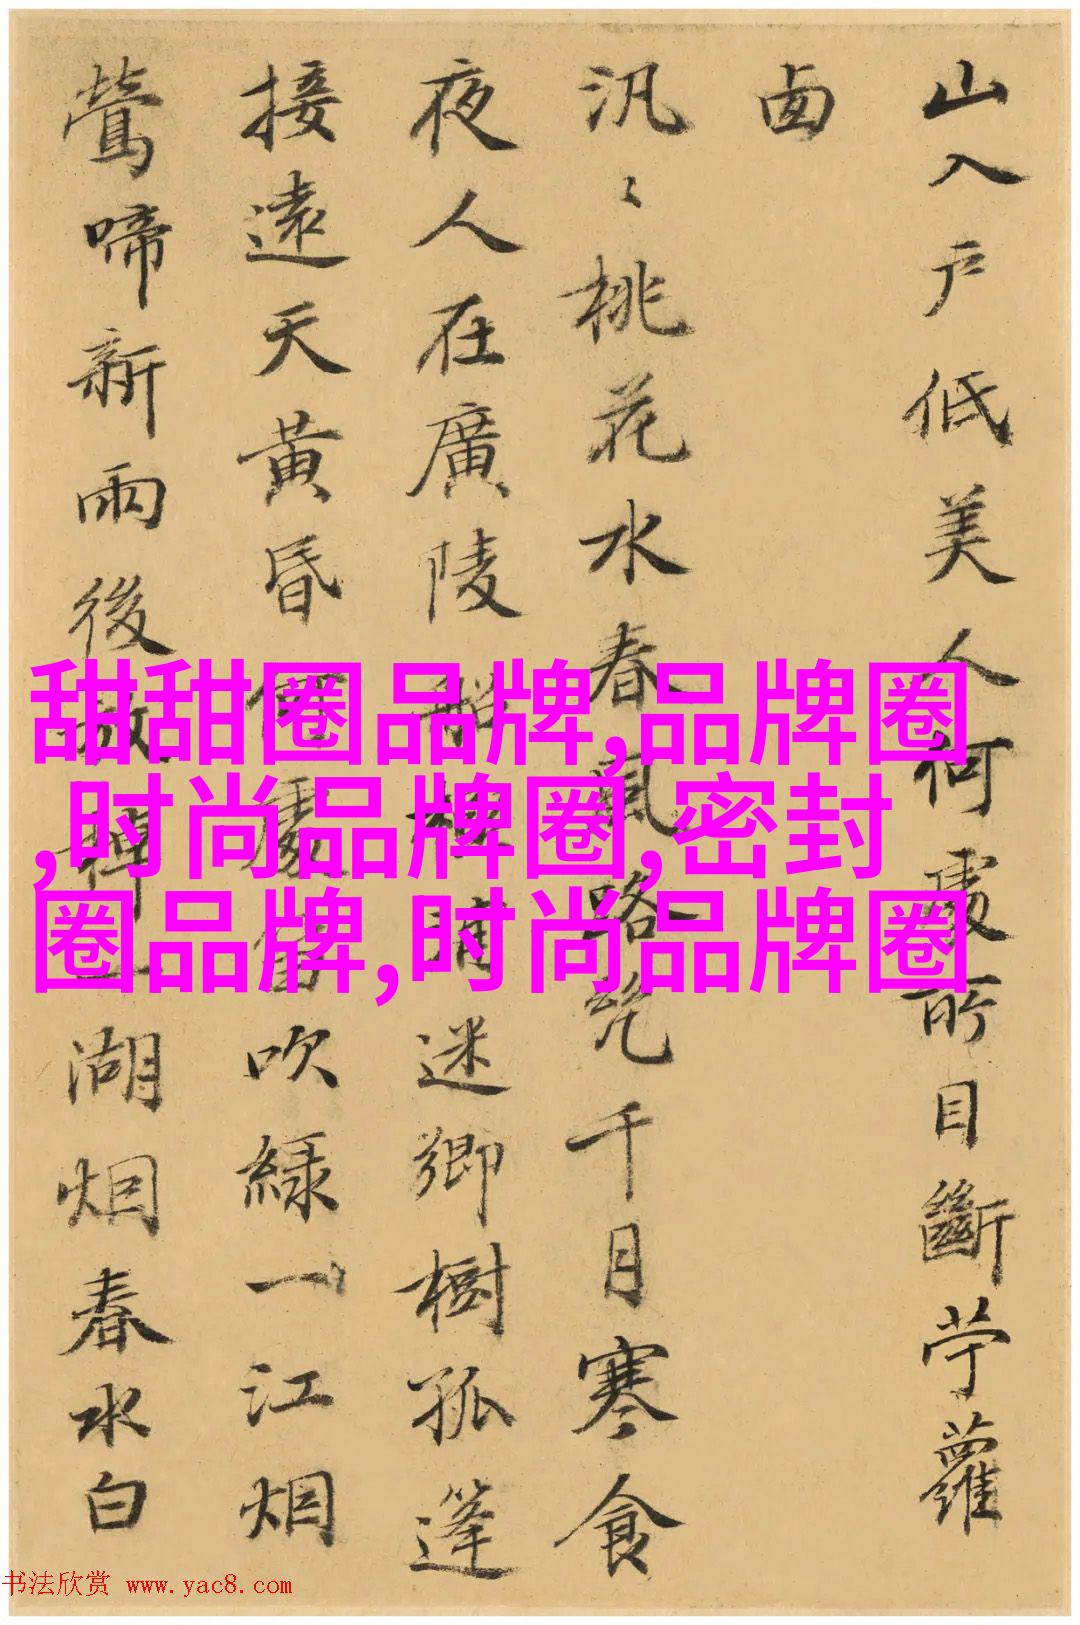 山入戶低美人何處所目斷苧蘿
汎〻桃花水春風路絶千月寒食
夜人在廣陵船極浦迷鄉樹孤篷
接遠天黄昏何處笛吹綠一江烟
鶯啼新雨後放棹一湖烟春水白
甜甜圈品牌,品牌圈
,时尚品牌圈,密封
圈品牌,时尚品牌圈
书法欣赏 www.yac8.com